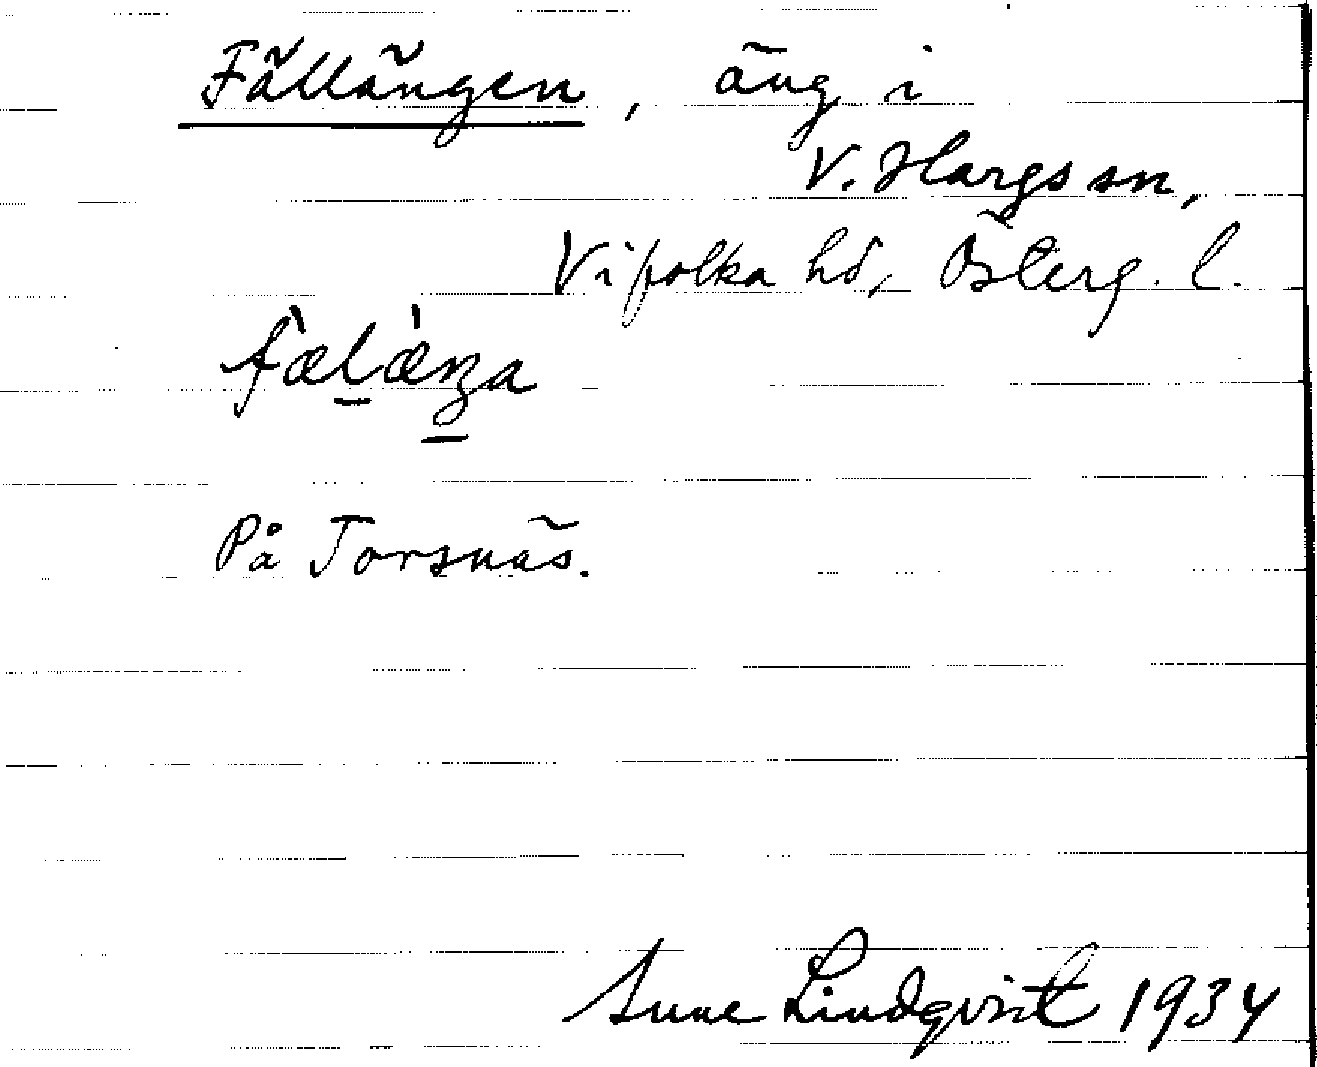 Fällängen, äng i
V. Hargs sn,
Vifolka hd, Österg. l.
fæ̀læ̀ŋa
På Torsnäs.
Sune Lindqvist 1934